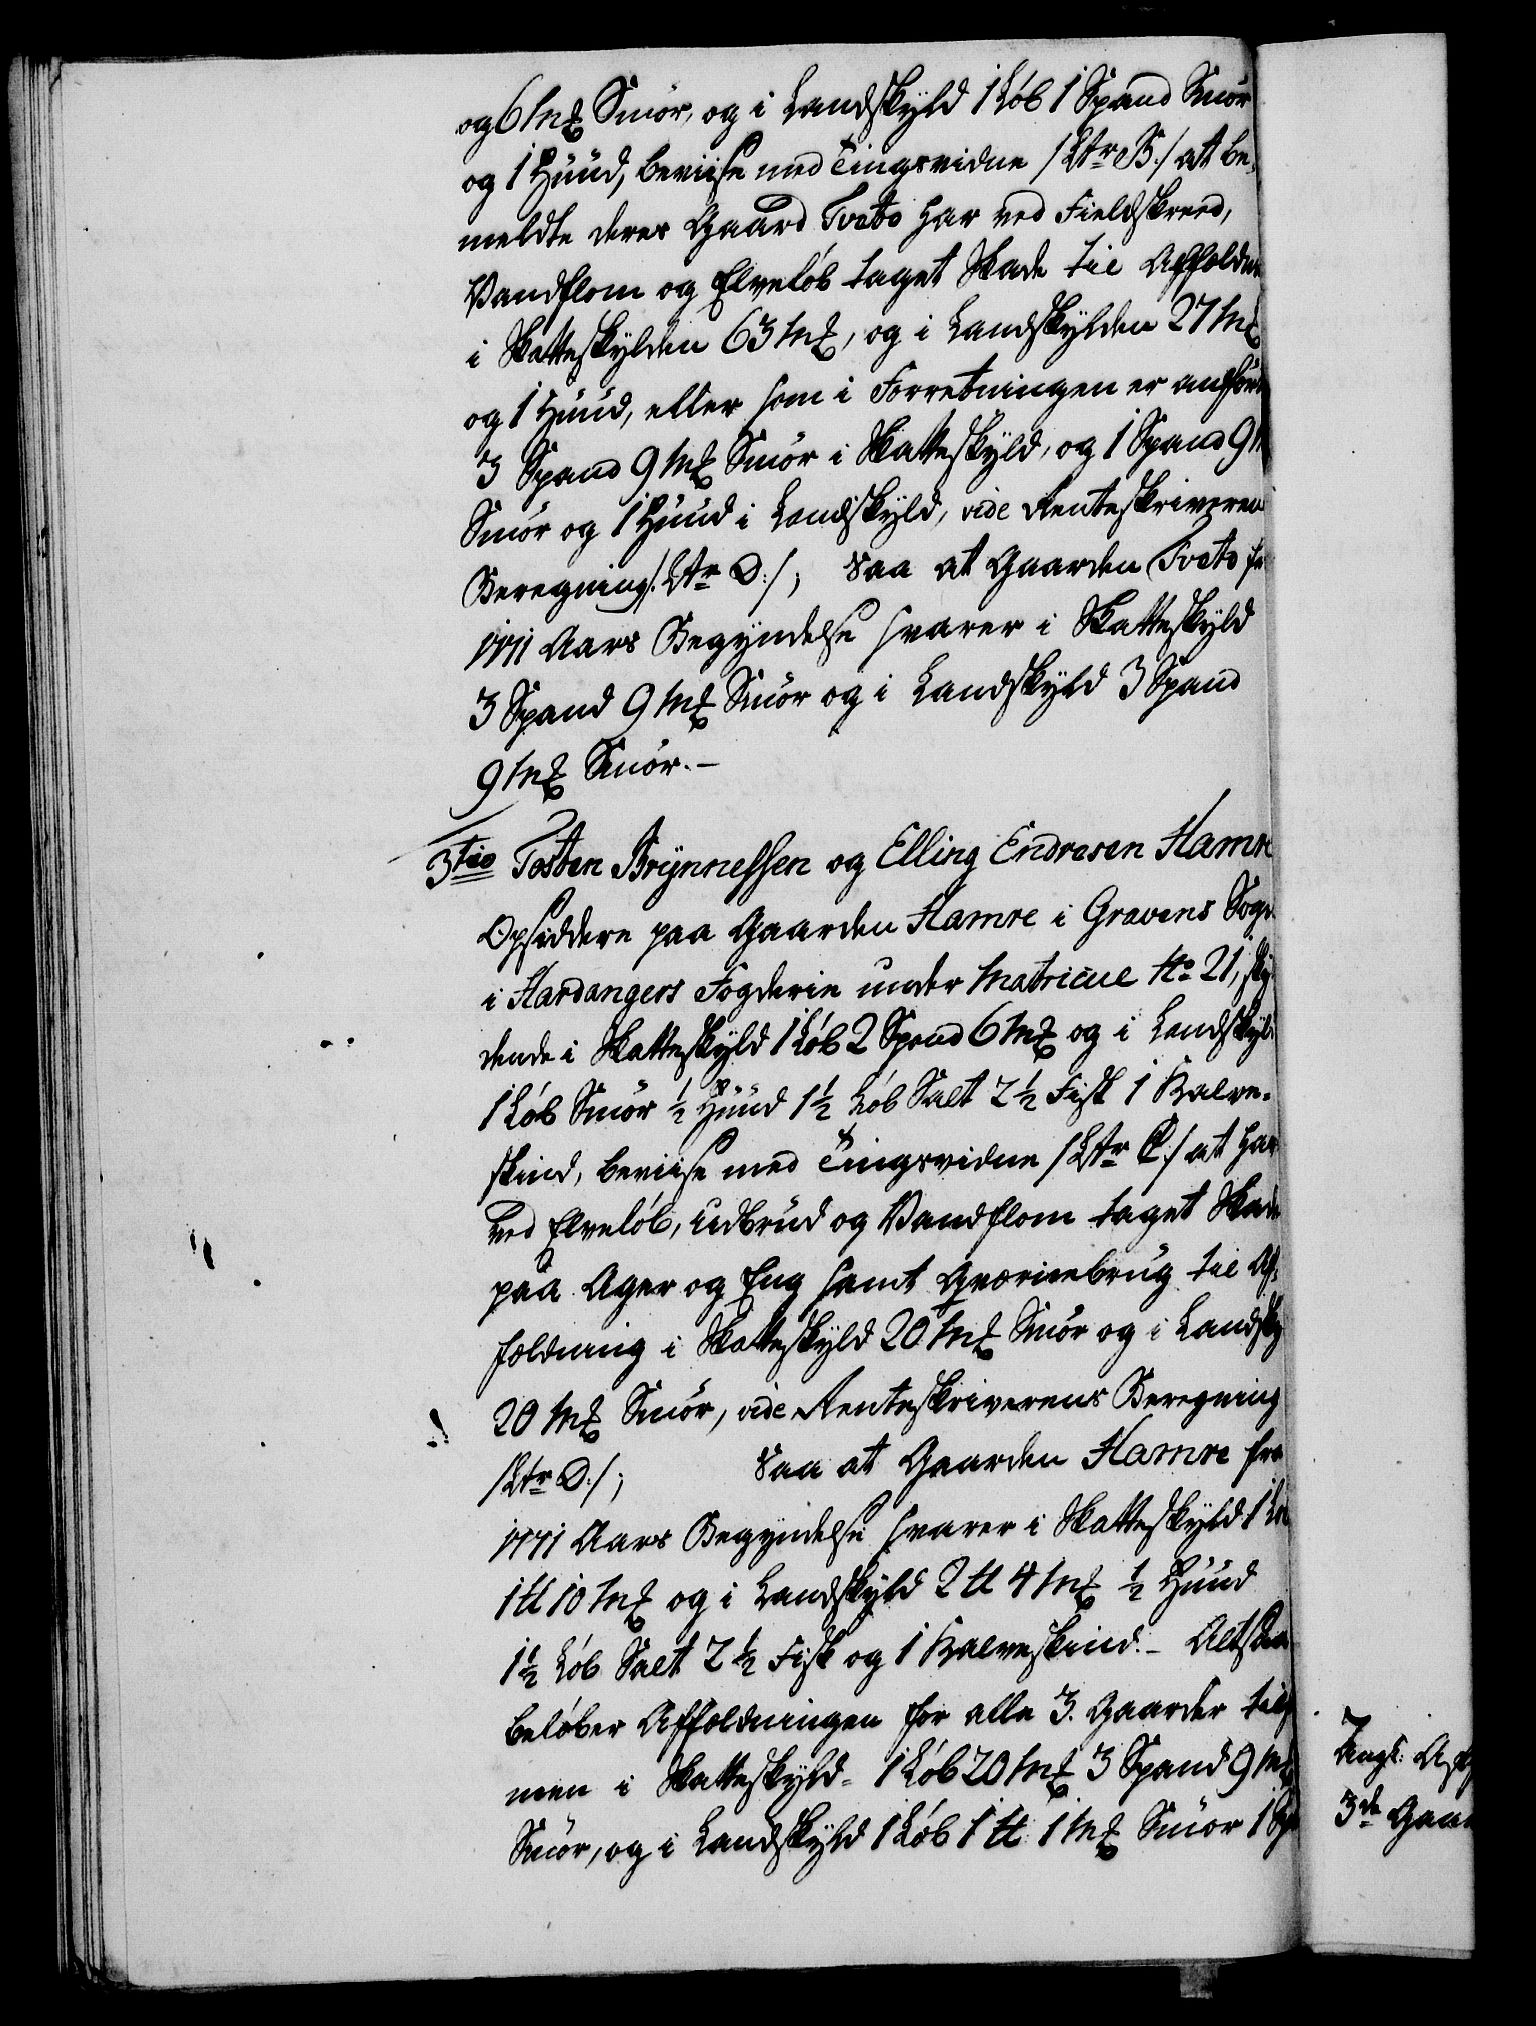 og 6 mk Smör, og i Landskyld 1 Løb 1 Spand Smör
og 1 Huud, beviise med Tingsvidne /:Ltr B:/ at be-
meldte deres Gaard Tveto har ved Fieldskreed,
Vandflom og Elveløb taget Skade til Affældn
i Skatteskylden 63 mk, og i Landskylden 27 mk
og 1 Huud, eller som i Forretningen er anför
3 Spand 9 mk Smör i Skatteskyld, og 1 Spand 9 m
Smör og 1 Huud i Landskyld, vide Renteskriveren
Beregning /:Ltr D:/; saa at Gaarden Tveto fr
1771 Aars Begyndelse svarer i Skatteskyld
3 Spand 9 mk Smör og i Landskyld 3 Spand
9 mk Smör.-
3tio Tosten Brynnelssen og Elling Endresen Hamre
Opsiddere paa Gaarden Hamre i Gravens Sogn
i Hardangers Fogderie under Matricul No 21, sky
dende i Skatteskyld 1 Løb 2 Spand 6 mk og i Landskyld
1 Løb Smör ½ Huud 1½ Løb Salt 2½ Fisk 1 Kalve-
skind, beviise med Tingsvidne /:Ltr C:/ at har
ved Elveløb, Udbrud og Vandflom taget Skade
paa Ager og Eng samt Qværnebrug til Af-
fældning i Skatteskyld 20 mk Smör og i Landsky
20 mk Smör, vide Renteskriverens Beregning
/:Ltr D:/; saa at Gaarden Hamre fra
1771 Aars Begyndelse svarer i Skatteskyld 1 Løb
1 tt 10 mk og i Landskyld 2 tt 4 mk ½ Huud
1½ Løb Salt 2½ Fisk og 1 Kalveskind.-
beløber Affældningen for alle 3. Gaarder
men i Skatteskyld- 1 Løb 20 mk 3 Spand 9 mk
Smör, og i Landskyld 1 Løb 1 tt 1 mk Smör 1 Sp
3de Gaar